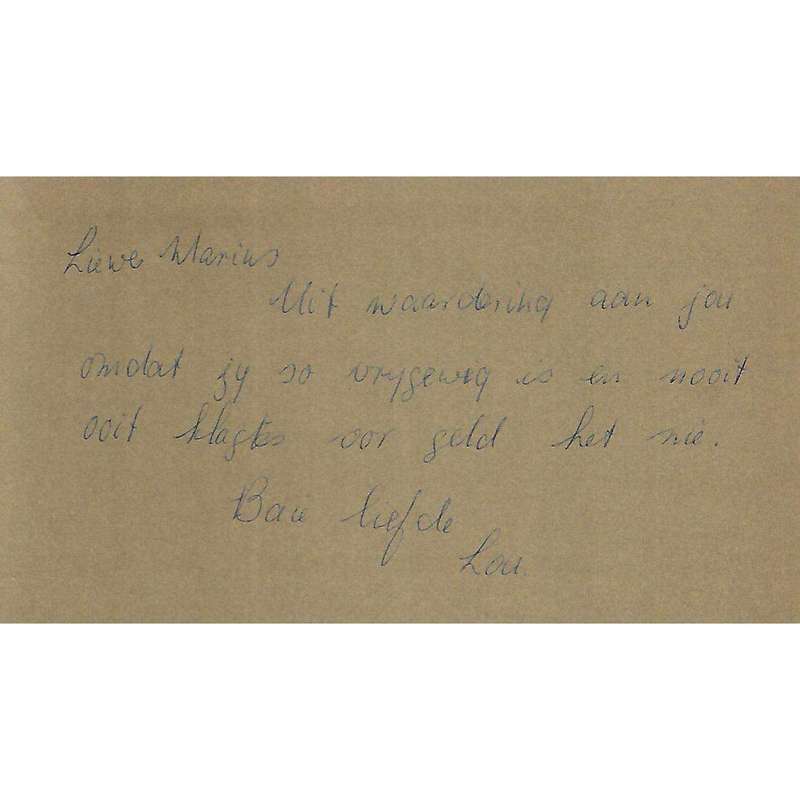 Liewe Marius
Uit waardering aan jou
omdat jy so vrygewig is en nooit
ooit klagtes oor geld het nie.
Baie liefde
Lou.